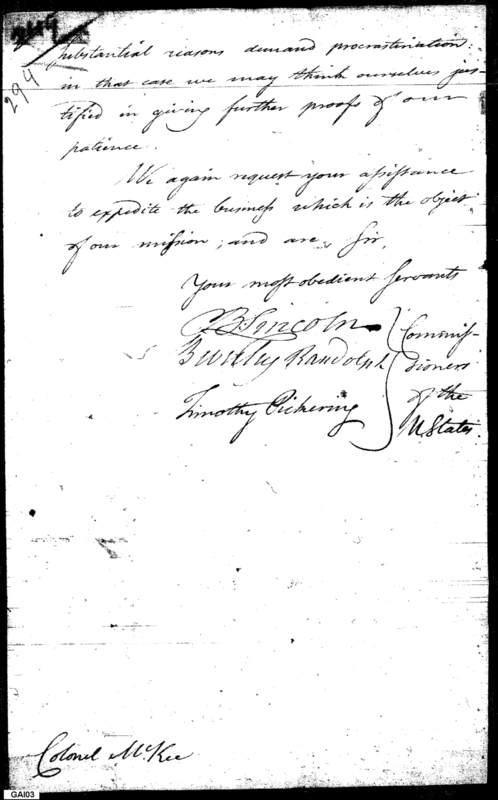 249
294
substantial reasons demand procrastination:
in that case we may think ourselves jus-
tified in giving further proofs of our
patience.
We again request your assistance
to expedite the business which is the object
of our mission; and are, Sir,
Your most obedient Servants
B Lincoln
Beverley Randolph
Timothy Pickering
Commis-
sioners
of the
U States.
Colonel McKee
GAI03